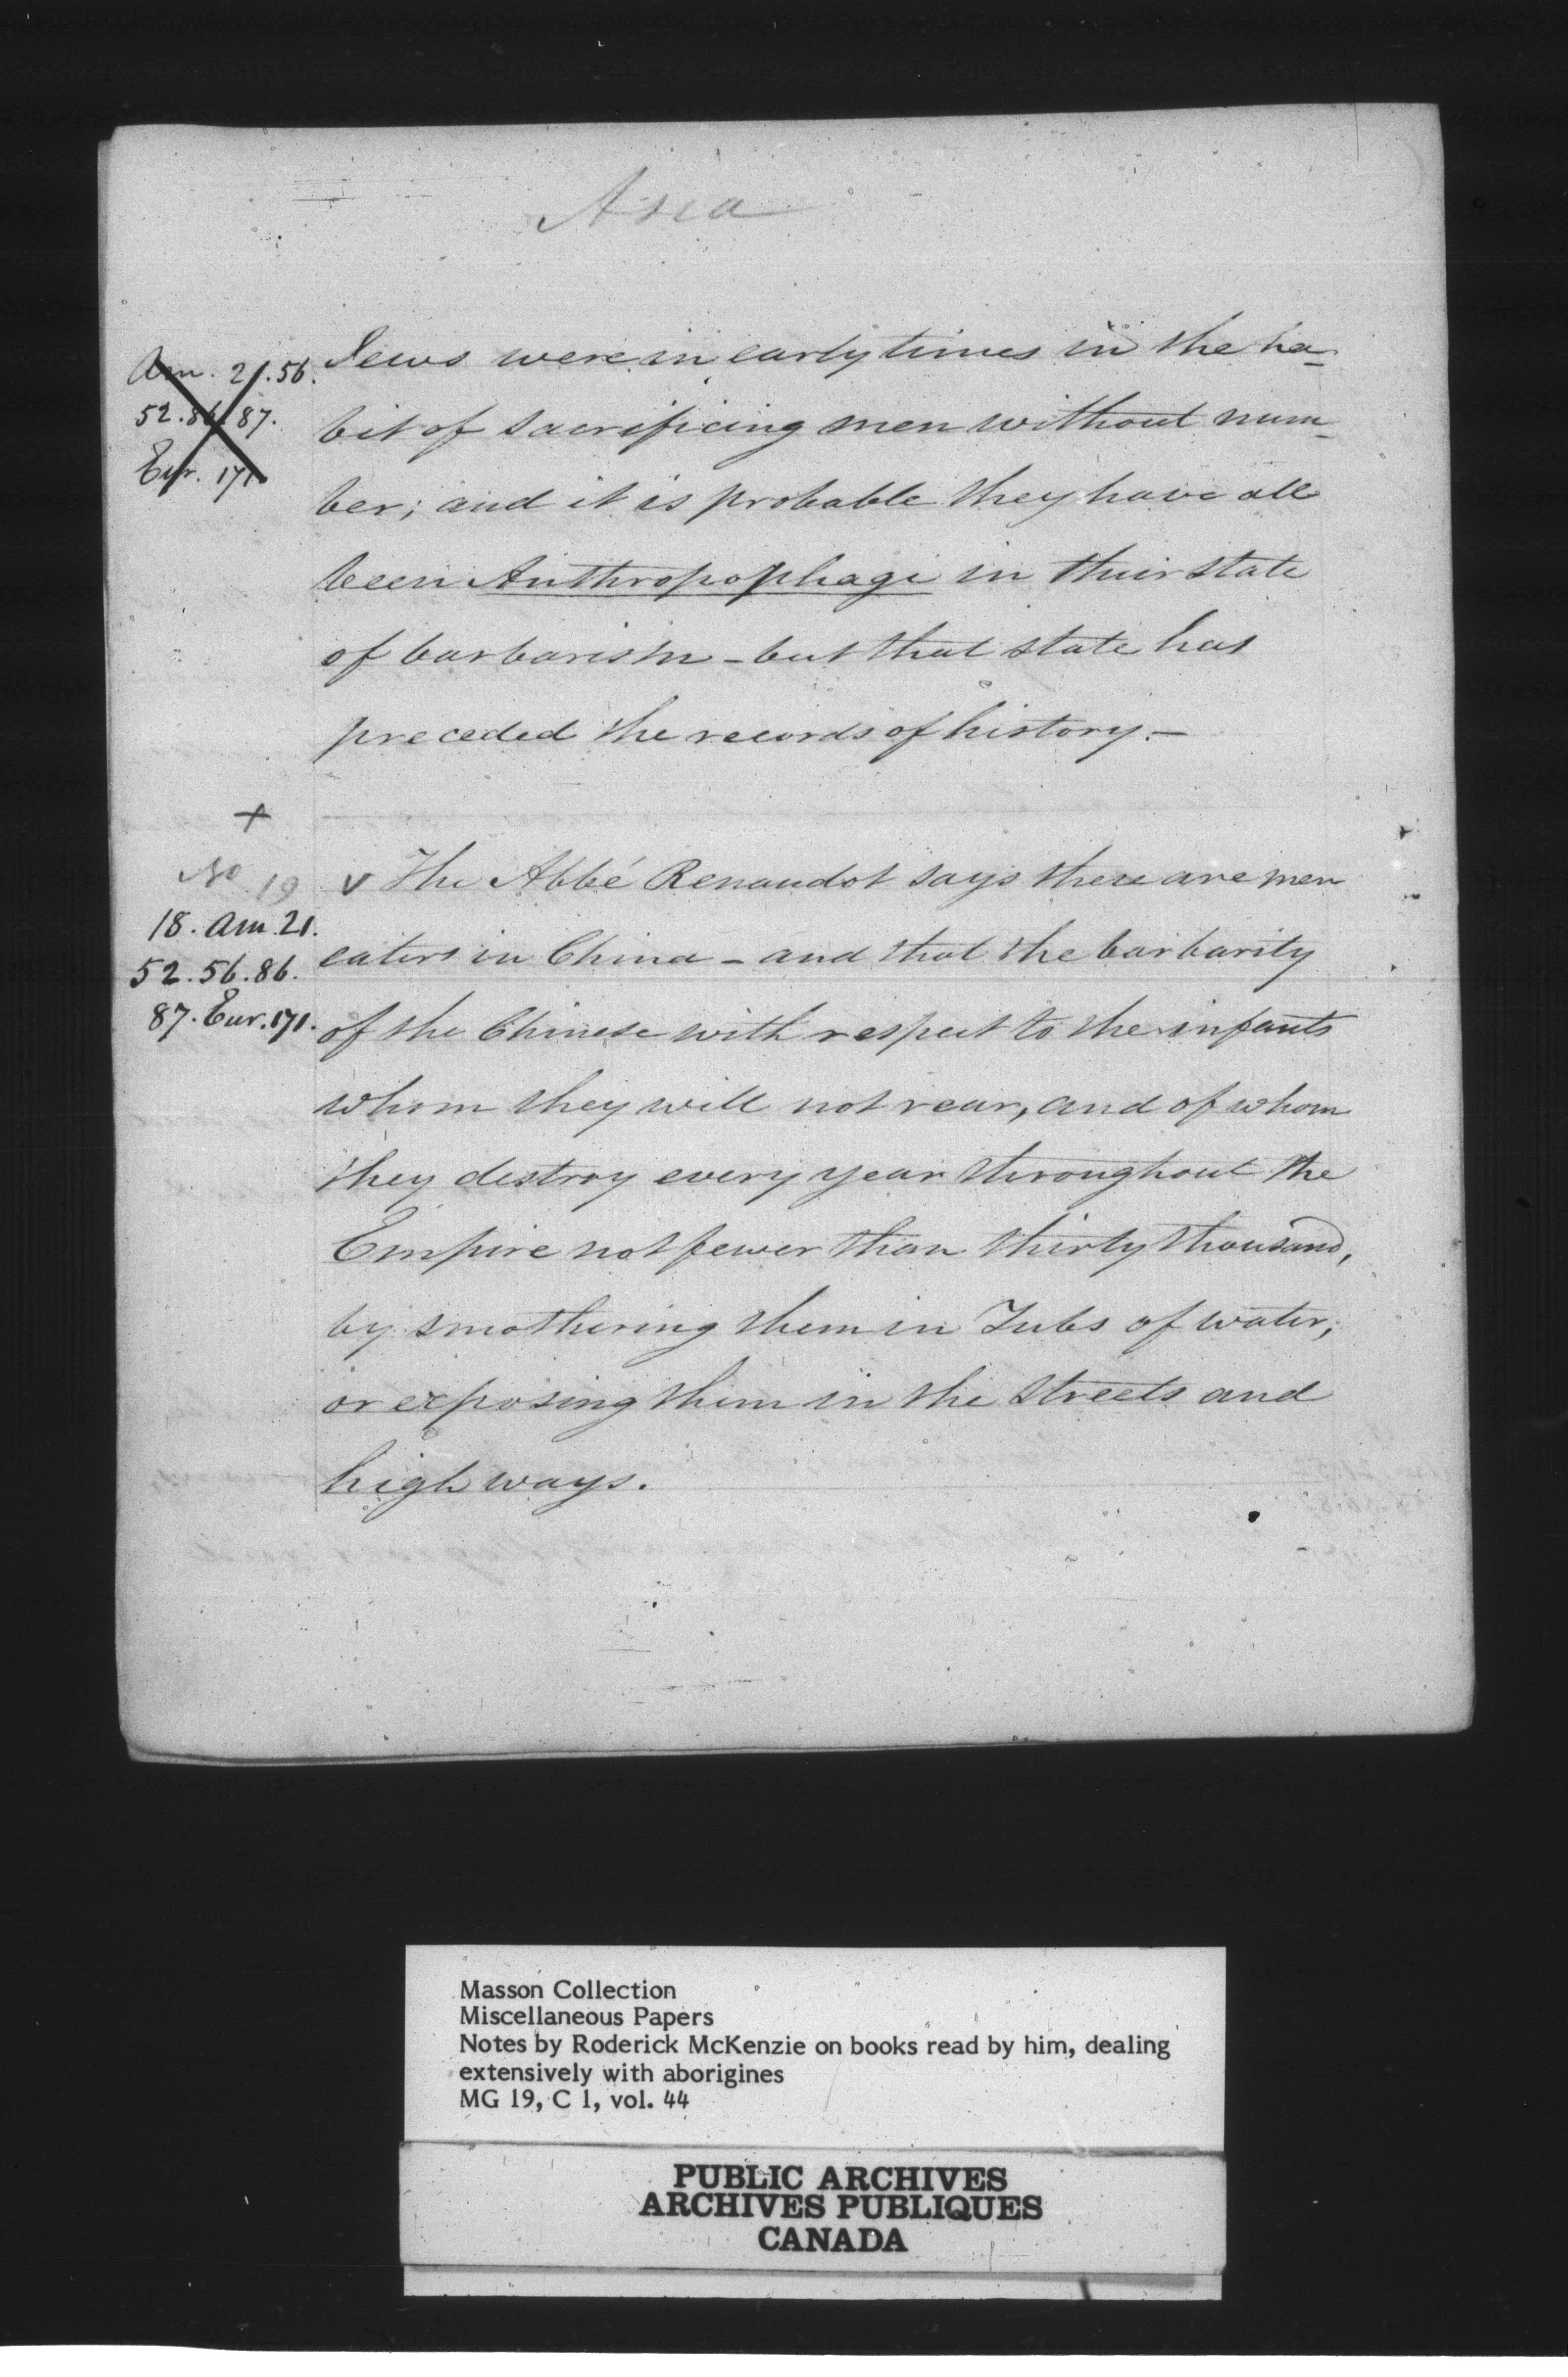 Asia
Am. 21.56.
52.86.87.
Eur. 171
Jews were in early times in the ha-
bit of sacrificing men without num-
ber; and it is probable they have all
been Anthropophagi in their state
of barbarism - but that state has
preceded the records of history.—
+
No 19
18. Am. 21.
52. 56. 86.
87. Eur. 171.
v The Abbé Renaudot says there are men
eaters in China - and that the barbarity
of the Chinese with respect to the infants
whom they will not rear, and of whom
they destroy every year throughout the
Empire not fewer than thirty thousand,
by smothering them in Tubs of water,
or exposing them in the Streets and
high ways.
Masson Collection
Miscellaneous Papers
Notes by Roderick McKenzie on books read by him, dealing
extensively with aborigines
MG 19, C 1, vol. 44
PUBLIC ARCHIVES
ARCHIVES PUBLIQUES
CANADA